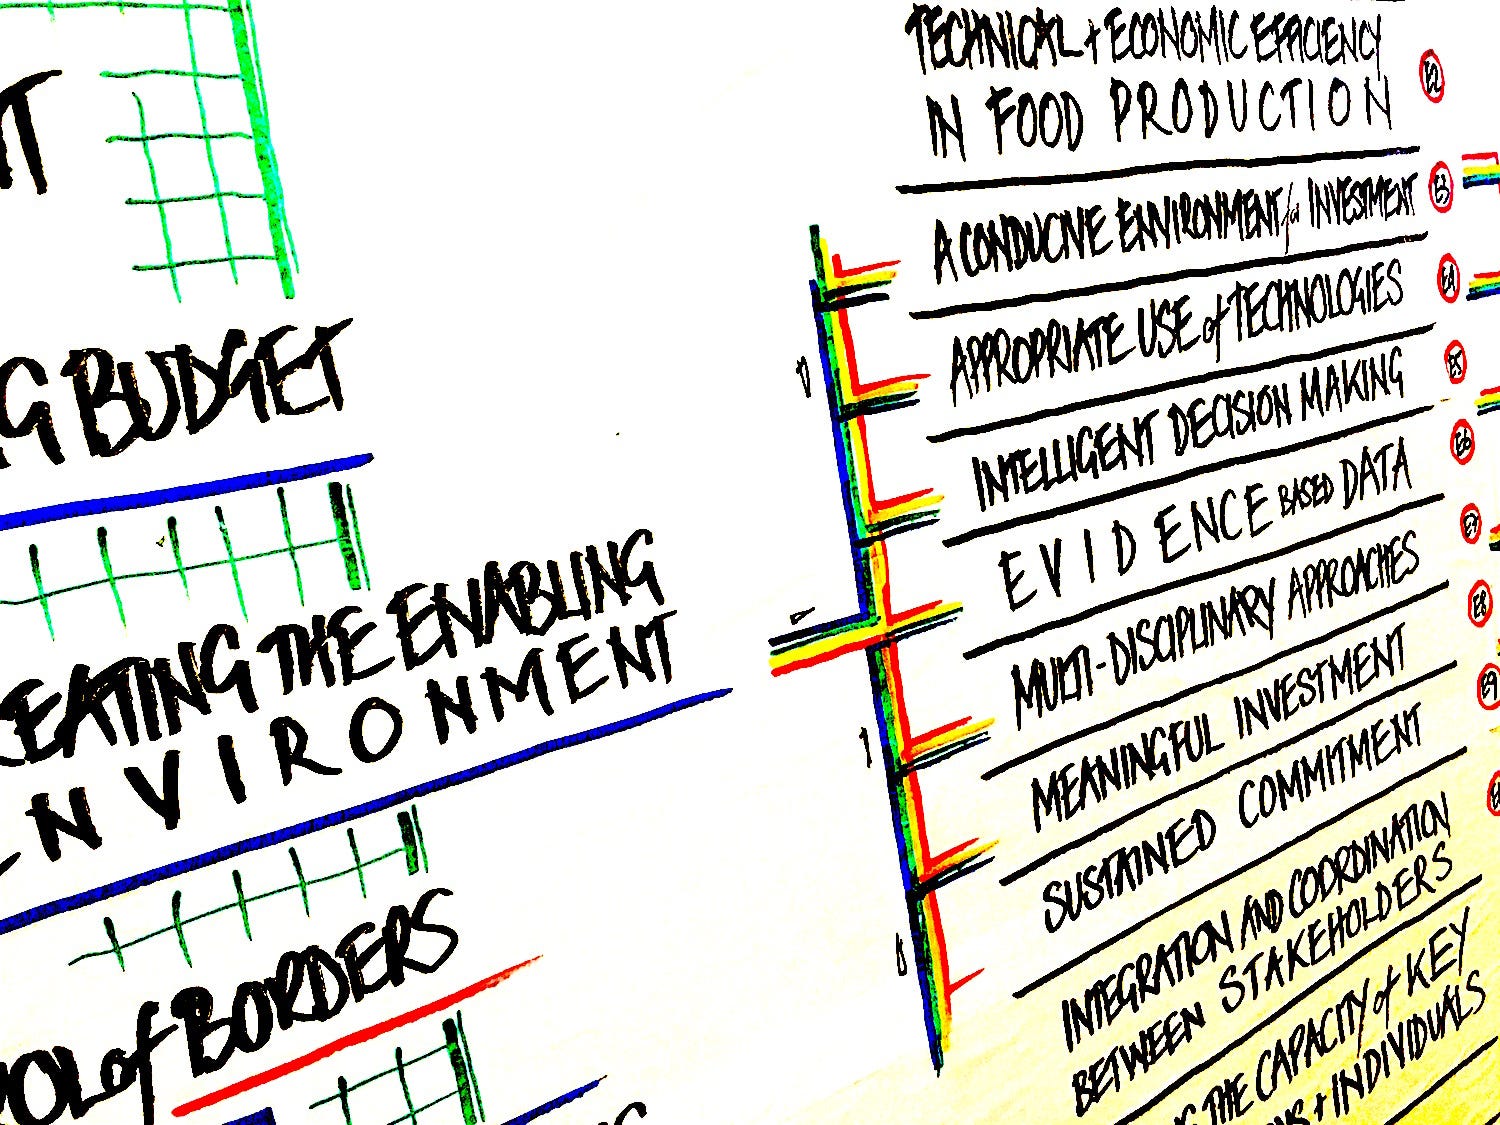 T
G BUDGET
REATING THE ENABLING
ENVIRONMENT
OL of BORDERS
TECHNICAL + ECONOMIC EFFICIENCY
IN FOOD PRODUCTION
E2
A CONDUCIVE ENVIRONMENT for INVESTMENT
E3
APPROPRIATE USE of TECHNOLOGIES
E4
INTELLIGENT DECISION MAKING
E5
EVIDENCE BASED DATA
E6
MULTI-DISCIPLINARY APPROACHES
E7
MEANINGFUL INVESTMENT
E8
SUSTAINED COMMITMENT
E9
INTEGRATION AND COORDINATION
BETWEEN STAKEHOLDERS
THE CAPACITY of KEY
NS + INDIVIDUALS